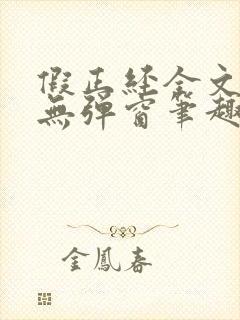 假正经全文
無彈窗筆趣
金鳳春